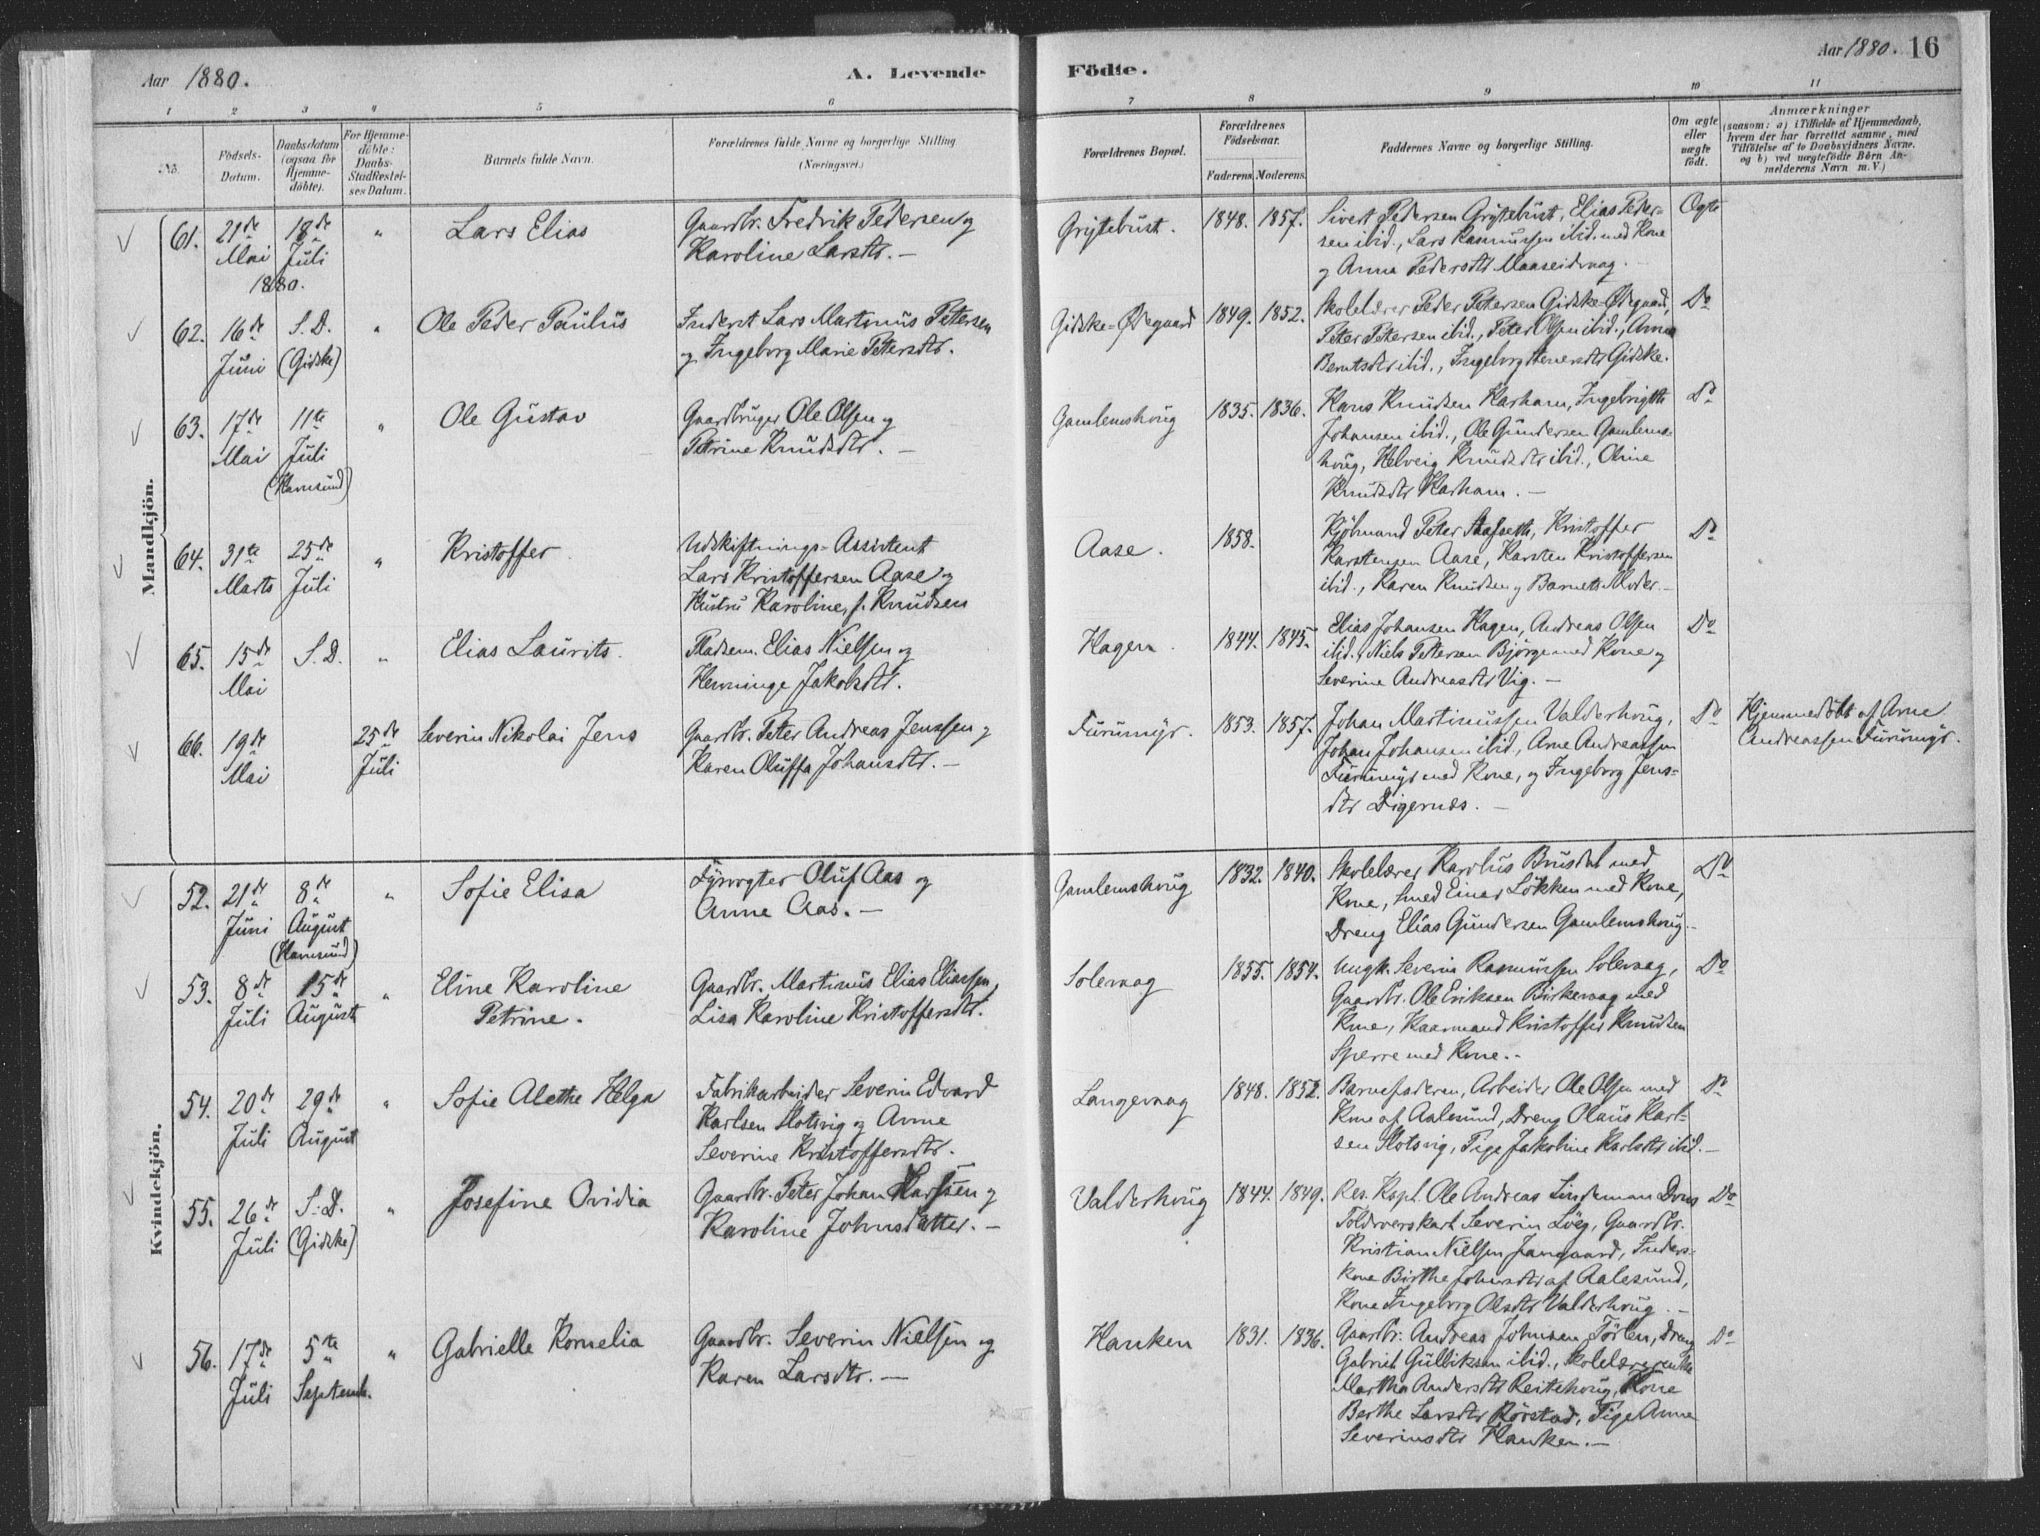 Aar 1880.
A. Levende
Födte.
Aar 1880. 16
1 2 3 4 5 6 7 8 9 10 11
No.
Födsels-
Datum.
Daabsdatum
(ogsaa for
Hjemme-
döbte).
For Hjemme-
döbte:
Daabs-
Stadfæstel-
ses Datum.
Barnets fulde Navn.
Forældrenes fulde Navne og borgerlige Stilling
(Næringsvei.)
Forældrenes Bopæl.
Forældrenes
Födselsaar.
Faderens. Moderens.
Faddernes Navne og borgerlige Stilling.
Om ægte
eller
uægte
födt.
Anmærkninger
(saasom: a) i Tilfælde af Hjemmedaab,
hvem der har forrettet samme, med
Tilföielse af to Daabsvidners Navne.
og b) ved uægtefödte Börn An-
melderens Navn m. V.)
Mandkjön.
61.
21de
Mai
18de
Juli
1880.
"
Lars Elias
Gaardbr. Fredrik Pedersen og
Karoline Larsdtr. —
Grytebust.
1848. 1857.
Sivert Pedersen Grytebust, Elias Peder-
sen ibid., Lars Rasmussen ibid. med Kone
og Anna Pedersdtr Maaseidvaag.
Ægte
62.
16de
Juni
S. D.
(Gidske)
"
Ole Peder Paulus
Inderst Lars Martinus Pettersen
og Ingeborg Marie Petersdtr.
Gidske-Ødegaard
1849. 1852.
Skolelærer Peder Petersen Gidske-Ødegaard,
Peter Petersen ibid., Peter Olsen ibid., Anna
Berntsdtr ibid., Ingeborg Stenersdtr Gidske.
Do
63.
17de
Mai
11te
Juli
(Havnsund)
"
Ole Gustav
Gaardbruger Ole Olsen og
Petrine Knudsdtr. —
Gamlemshoug
1835. 1836.
Hans Knudsen Harham, Ingebrigth
Johansen ibid., Ole Gundersen Gamlems-
houg, Helveig Knudsdtr ibid., Oline
Knudsdtr Harham. —
Do
64.
31te
Marts
25de
Juli
"
Kristoffer
Udskiftnings-Assistent
Lars Kristoffersen Aase og
Hustru Karoline, f. Knudsen
Aase.
1858.
Kjöbmand Peter Stafseth, Kristoffer
Karstensen Aase, Karsten Kristoffersen
ibid., Karen Knudsen og Barnets Moder. —
Do
65.
15de
Mai
S. D.
"
Elias Laurits.
Pladsm. Elias Nielsen og
Henninge Jakobsdtr.
Hagen
1844. 1845.
Elias Johansen Hagen, Andreas Olsen
ibid., Niels Pettersen Bjørge med Kone og
Severine Andreasdtr Vig. —
Do
66.
19de
Mai
25de
Juli
Severin Nikolai Jens
Gaardbr. Peter Andreas Jenssen og
Karen Oluffa Johansdtr. —
Furumyr.
1853. 1857.
Johan Martinussen Valderhoug,
Johan Johansen ibid., Arne Andreassen
Furumyr med Kone, og Ingeborg Jens-
dtr Digernæs. —
Do
Hjemmedöbt af Arne
Andreassen Furumyr.
Kvindekjön.
52.
21de
Juni
8de
August
(Havnsund)
"
Sofie Elisa
Fyrvogter Oluf Aas og
Anne Aas. —
Gamlemshoug
1832. 1840.
Skolelærer Karolus Brusdal med
Kone, Smed Einar Lökken med Kone,
Dreng Elias Gundersen Gamlemshoug. —
Do
53.
8de
Juli
15de
August
"
Eline Karoline
Petrine.
Gaardbr. Martinus Elias Eliassen,
Lisa Karoline Kristoffersdtr.
Solevaag
1855. 1854.
Ungk. Severin Rasmussen Solevaag,
Gaardbr. Ole Eriksen Birkevaag med
Kone, Kaarmand Kristoffer Knudsen
Sperre med Kone. —
Do
54.
20de
Juli
29de
August
"
Sofie Alethe Helga
Fabrikarbeider Severin Edvard
Karlsen Slotsvig og Anne
Severine Kristoffersdtr.
Langevaag
1848. 1852.
Barnefaderen, Arbeider Ole Olsen med
Kone af Aalesund, Dreng Olaus Karl-
sen Slotsvig, Pige Jakobine Karlsdtr ibid. —
Do
55.
26de
Juli
S. D.
(Gidske)
"
Josefine Ovidia
Gaardbr. Peter Johan Larsen og
Karoline Johnsdatter. —
Valderhoug
1844. 1849.
Res. Kapl. Ole Andreas Lindeman Dons
Toldoverskarl Severin Löeg, Gaardbr.
Kristian Nielsen Jangaard, Inders-
kone Birthe Johnsdtr af Aalesund,
Kone Ingeborg Olsdtr Valderhoug. —
Do
56.
17de
Juli
5te
Septemb.
"
Gabrielle Kornelia
Gaardbr. Severin Nielsen og
Karen Larsdtr. —
Hauken
1831. 1836.
Gaardbr. Andreas Johnsen Törlen, Dreng
Gabriel Gulliksen ibid.,
Martha Andersdtr Reitehoug, Kone
Berthe Larsdtr Rörstad, Pige Anne
Severinsdtr Hauken. —
Do